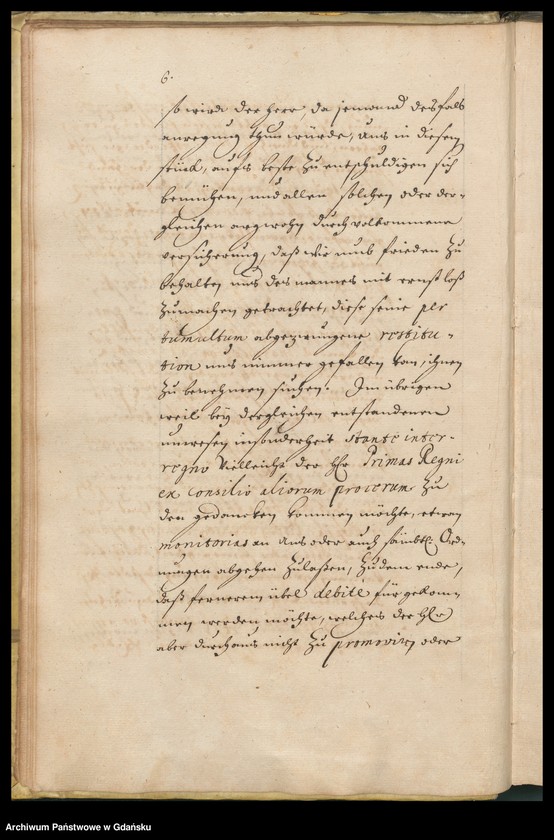 6.
so wird der Herr, da jemand desfals
anregung thun würde, uns in diesem
stück, aufs beste zu entschuldigen sich
bemühen, und allen solchen oder der-
gleichen argwohn durch volkommene
versicherung, daß wir umb frieden zu
behalten uns des mannes mit ernst loß
zumachen getrachtet, diese seine per
tumultum abgezwungene restitu-
tion uns nimmer gefallen kan, ihnen
zu benehmen suchen. Im übrigen
weil bey dergleichen entstandenen
unwesen insonderheit stante inter-
regno vielleicht der Hr Primas Regni
ex consilio aliorum procerum zu
den gedancken kommen möchte, etwan
monitorias an uns oder auch sämbtl. Ord-
nungen abgehen zulaßen, zudem ende,
daß fernerem übel debite für gekom-
men werden möchte, welches der Hr
aber durchaus nicht zu promoviren oder
Archiwum Państwowe w Gdańsku